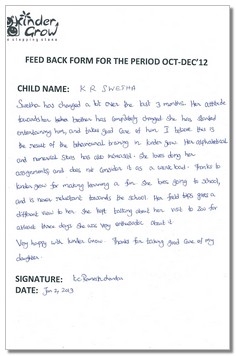 Kinder
Grow
a stepping stone
FEED BACK FORM FOR THE PERIOD OCT-DEC'12
CHILD NAME: K R SWETHA
Swetha has changed a lot over the last 3 months. Her attitude
towards her brother has completely changed she has started
entertaining him, and takes good care of him. I believe this is
the result of the behavioural training in kinder grow. Her alphabetical
and numerical skills has also increased. She loves doing her
assignments and does not consider it as a work load. Thanks to
kinder grow for making learning a fun. She loves going to school,
and is never reluctant towards the school. Her field trips gives a
different view to her. She kept talking about her visit to zoo for
atleast three days she was very enthusiastic about it.
Very happy with kinder Grow. Thanks for taking good care of my
daughter.
SIGNATURE: K.C Ramesh chandra
DATE: Jan 2, 2013